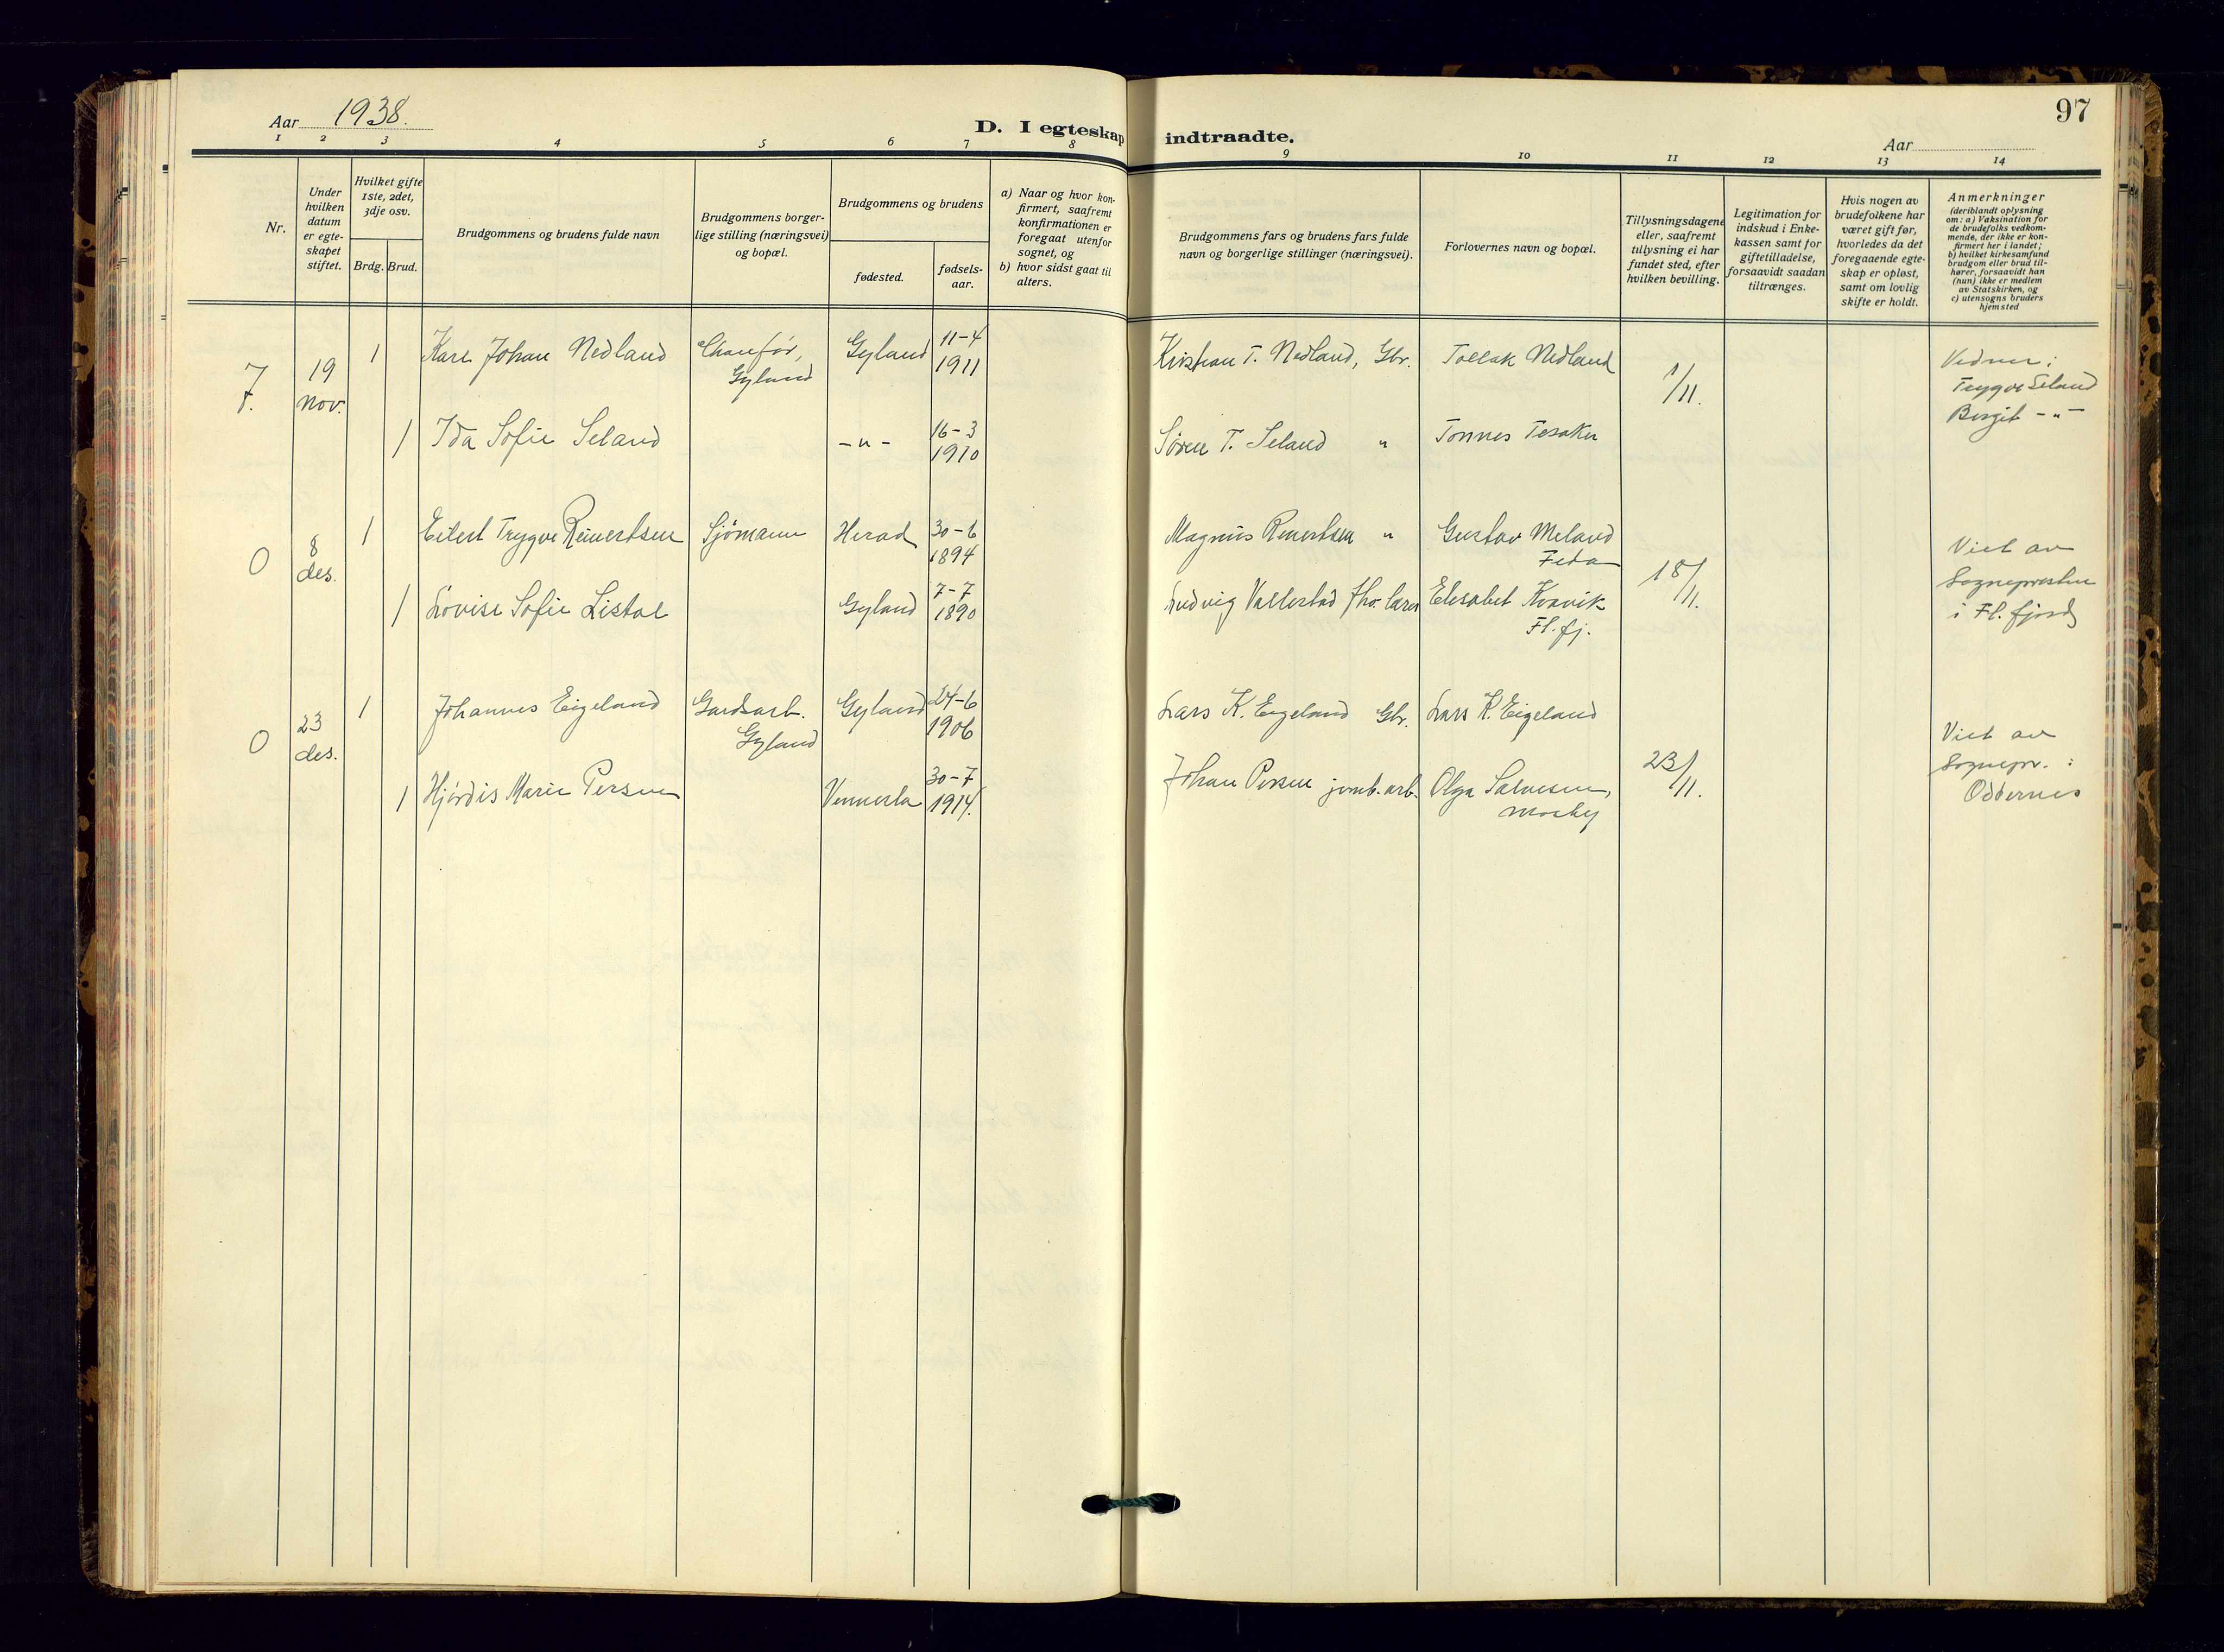 97
Aar 1938.
D. I egteskap indtraadte.
Aar
1 2 3 4 5 6 7 8 9 10 11 12 13 14
Nr.
Under
hvilken
datum
er egte-
skapet
stiftet.
Hvilket gifte
1ste, 2det,
3dje osv.
Brdg. Brud.
Brudgommens og brudens fulde navn
Brudgommens borger-
lige stilling (næringsvei)
og bopæl.
Brudgommens og brudens
fødested.
fødsels-
aar.
a) Naar og hvor kon-
firmert, saafremt
konfirmationen er
foregaat utenfor
sognet, og
b) hvor sidst gaat til
alters.
Brudgommens fars og brudens fars fulde
navn og borgerlige stillinger (næringsvei).
Forlovernes navn og bopæl.
Tillysningsdagene
eller, saafremt
tillysning ei har
fundet sted, efter
hvilken bevilling.
Legitimation for
indskud i Enke-
kassen samt for
giftetilladelse,
forsaavidt saadan
tiltrænges.
Hvis nogen av
brudefolkene har
været gift før,
hvorledes da det
foregaaende egte-
skap er opløst,
samt om lovlig
skifte er holdt.
Anmerkninger
(deriblandt oplysning
om: a) Vaksination for
de brudefolks vedkom-
mende, der ikke er kon-
firmert her i landet;
b) hvilket kirkesamfund
brudgom eller brud til-
hører, forsaavidt han
(hun) ikke er medlem
av Statskirken, og
c) utensogns bruders
hjemsted
7.
19
nov.
1
Karl Johan Nedland
Chaufør,
Gyland
Gyland
11-4
1911
Kristian T. Nedland, Gbr.
Tollak Nedland
1/11.
Vidner:
Trygve Seland
Bergit -"-
1
Ida Sofie Seland
-"-
16-3
1910
Søren T. Seland "
Tønnes Tesaker
0
8
des.
1
Eilert Trygve Reinertsen
Sjömann
Herad
30-6
1894
Magnus Reinertsen "
Gustav Meland
Feda
18/11.
Viet av
Sognepresten
i Fl. fjord
1
Lovise Sofie Listøl
Gyland
7-7
1890
Ludvig Vallestad
Elesabet Kvavik
Fl. fj.
0
23
des.
1
Johannes Eigeland
Gardsarb.
Gyland
Gyland
24-6
1906
Lars K. Eigeland Gbr.
Lars K. Eigeland
23/11.
Viet av
Sognepr. :
Oddernes
1
Hjördis Marie Persen
Vennesla
30-7
1914.
Johan Persen jernb. arb.
Olga Salvesen,
Mosby